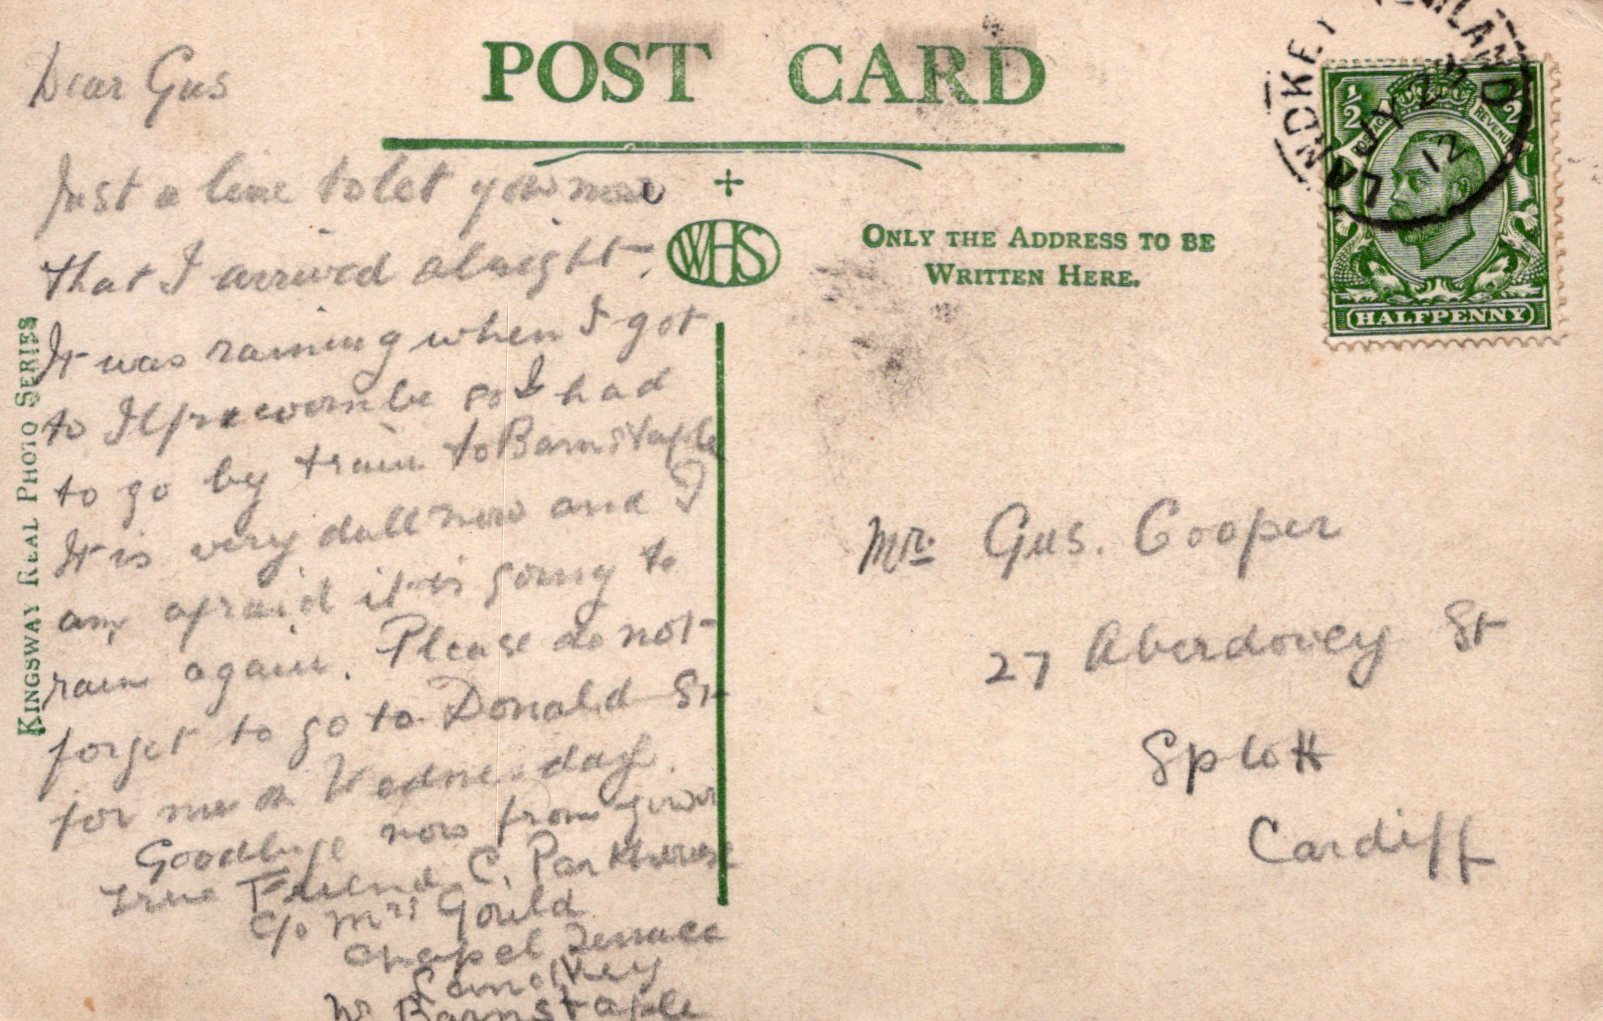 POST CARD
Dear Gus
Just a line to let you now
that I arrived alright.
It was raining when I got
to Ilfracombe so I had
to go by train to Barnstaple
It is very dull now and I
am afraid it is going to
rain again. Please do not
forget to go to Donald St
for me on Wednesday.
Goodbye now from your
true Friend C. Parkhouse
c/o Mrs Gould
Chapel Terrace
Landkey
Nr Barnstaple
KINGSWAY REAL PHOTO SERIES
WHS
ONLY THE ADDRESS TO BE
WRITTEN HERE.
LANDKEY
JY 29
12
½
POSTAGE
REVENUE
HALFPENNY
Mr. Gus. Cooper
27 Aberdovey St
Splott
Cardiff